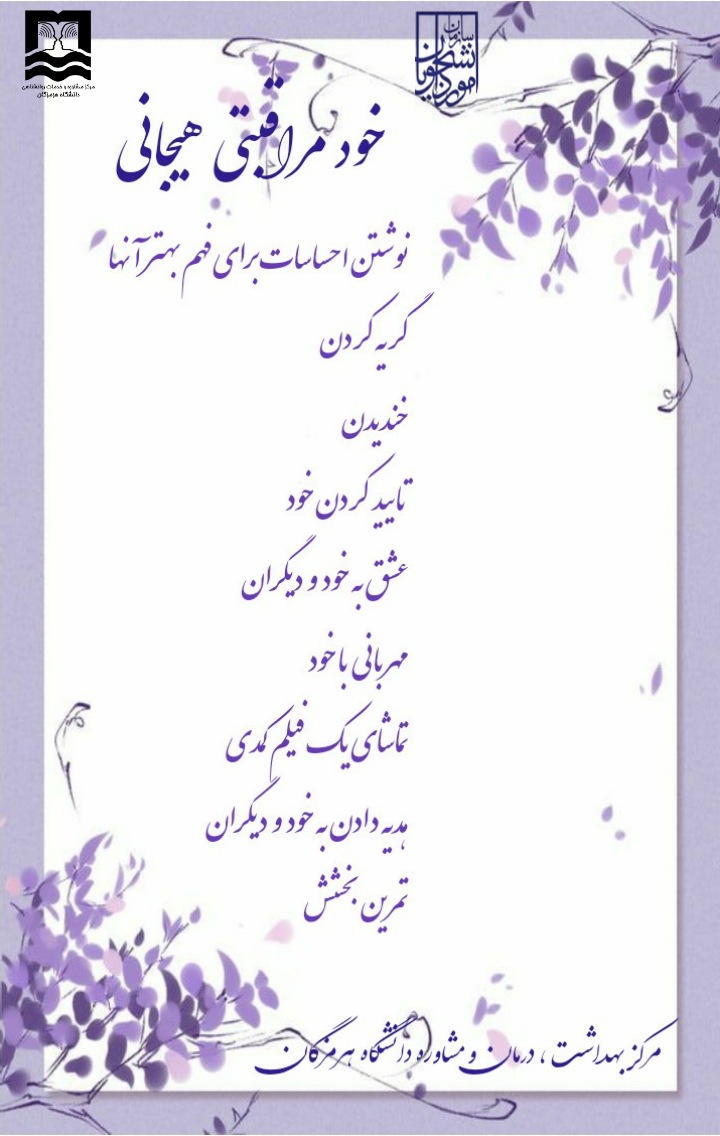 مرکز مشاوره و خدمات روانشناختی
دانشگاه هرمزگان
سازمان
امور دانشجویان
خود مراقبتی هیجانی
نوشتن احساسات برای فهم بهتر آنها
گریه کردن
خندیدن
تایید کردن خود
عشق به خود و دیگران
مهربانی با خود
تماشای یک فیلم کمدی
هدیه دادن به خود و دیگران
تمرین بخشش
مرکز بهداشت ، درمان و مشاوره دانشگاه هرمزگان